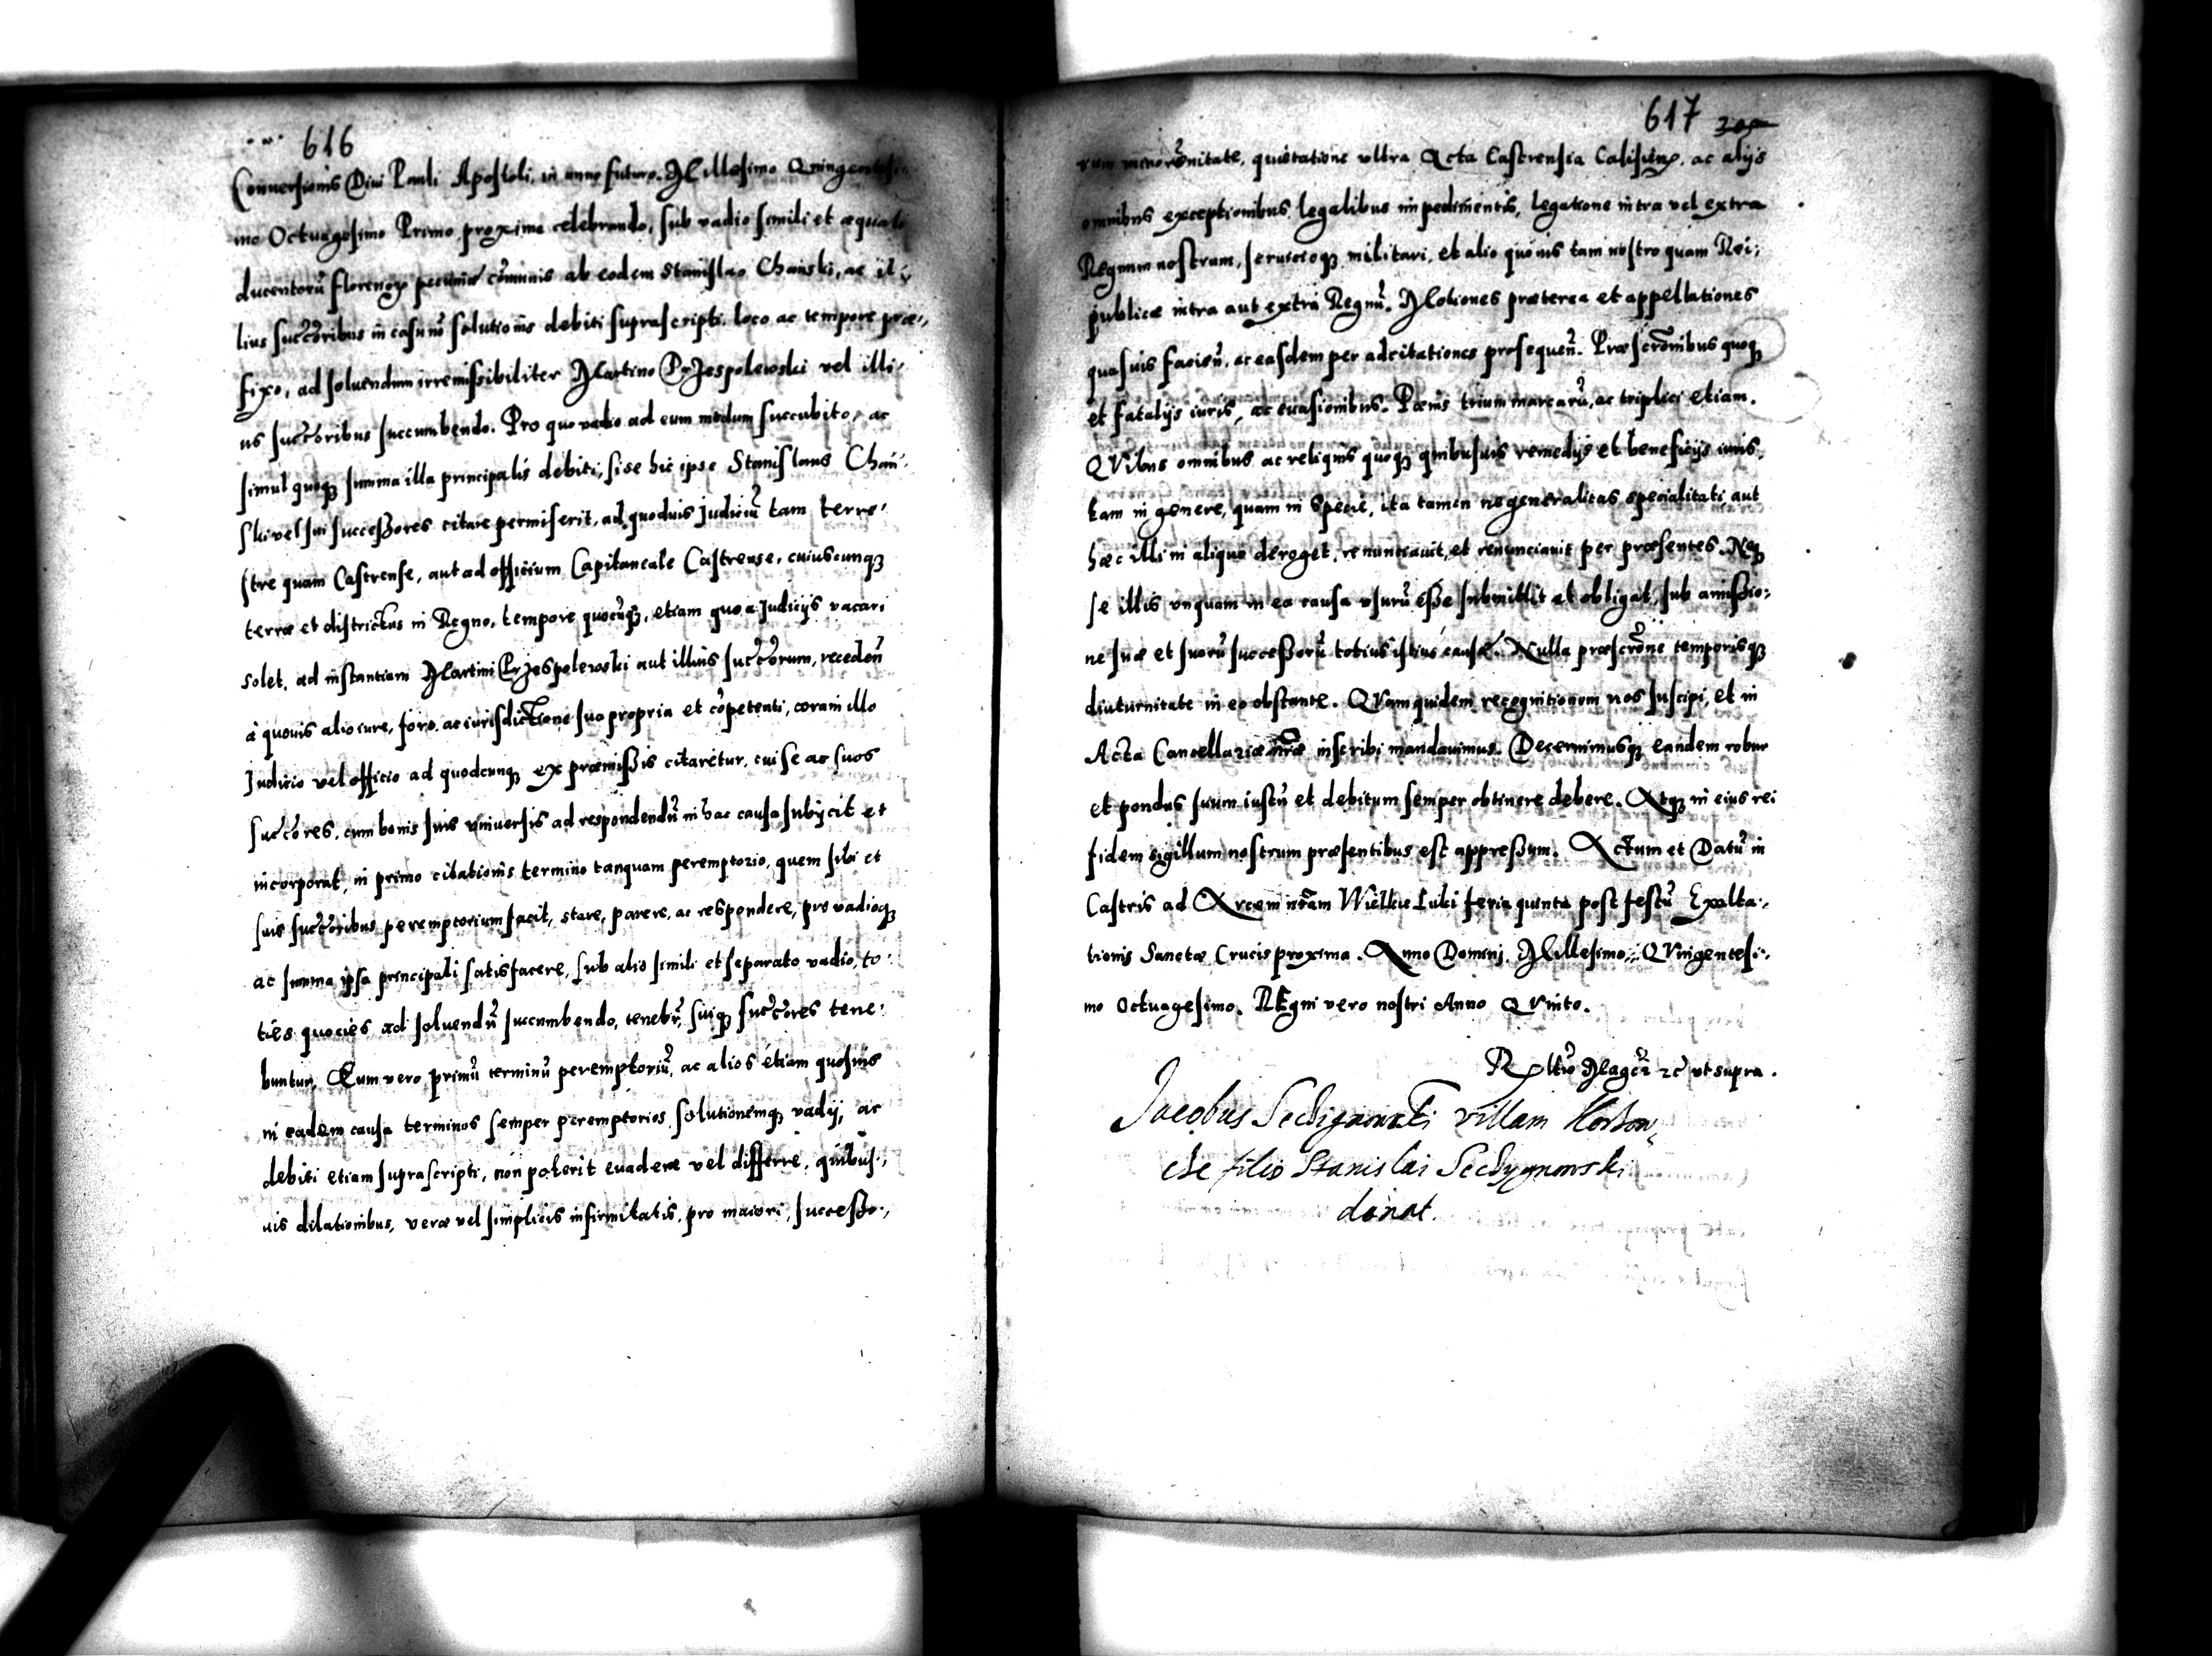 616
Conuersionis Diui Pauli Apostoli, in anno futuro Millesimo Quingentesi
mo Octuagesimo Primo proxime celebrando, sub vadio simili et æquali
ducentorũ florenorũ pecuniæ cõmunis ab eodem Stanislao Chański, ac il
lius succõribus in casu nõ solutionis debiti suprascripti, loco ac tempore præ,,
fixo, ad soluendum irremissibiliter Martino Przespolewski vel illi,
us succõribus succumbendo. Pro quo vadio ad eum modum succubito, ac
simul quoqȝ summa illa principalis debiti, si se hic ipse Stanislaus Chań,
ski vel sui successores citare permiserit, ad quoduis Judiciũ tam terre,
stre quam Castrense, aut ad officium Capitaneale Castrense, cuiuscunqȝ
terræ et districtus in Regno, tempore quocũqȝ, etiam quo a Judicijs vacari
solet, ad instantiam Martini Przespolewski aut illius succõrum, recedeñ
à quouis alio iure, foro, ac iurisdictione sua propria et cõpetenti, coram illo
Judicio vel officio ad quodcunqȝ ex præmissis citaretur, cui se ac suos
succõres, cum bonis suis vniuersis ad respondendũ in hac causa subijcit et
incorporat, in primo citationis termino tanquam peremptorio, quem sibi et
suis succõribus peremptorium facit, stare, parere, ac respondere, pro vadioqȝ
ac summa ipsa principali satisfacere, sub alio simili et separato vadio, to,
ties quoties ad soluendũ succumbendo, tenebr̃, suiqȝ succõres tene,
buntur. Eum vero primũ terminũ peremptoriũ, ac alios etiam quosuis
in eadem causa terminos semper peremptorios solutionemqȝ vadij, ac
debiti etiam suprascripti, non poterit euadere vel differre, quibus,,
uis dilationibus, veræ vel simplicis infirmitatis, pro maiori, successo,,
617 305
rum minorẽnitate, quietatione vltra Acta Castrensia Calisieñ, ac alijs
omnibus exceptionibus legalibus impedimentis, legatione intra vel extra
Regnum nostrum, seruicioqȝ militari, et alio quouis tam nostro quam Rei,
publicæ intra aut extra Regnũ. Motiones præterea et appellationes
quasuis facieñ, ac easdem per adcitationes prosequeñ. Præscrõnibus quoqȝ
et fatalijs iuris, ac euasionibus. Pœnis trium marcarũ, ac triplici etiam.
QVibus omnibus ac reliquis quoqȝ quibusuis remedijs et beneficijs iuris,
tam in genere, quam in specie, ita tamen ne generalitas specialitati aut
hæc illi in aliquo deroget, renuntiauit, et renunciauit per præsentes. Neqȝ
se illis vnquam in ea causa vsurũ esse submittit et obligat, sub amissio,
ne suæ et suorũ successorũ totius istius causæ. Nulla præscrõne temporisqȝ
diuturnitate in eo obstante. QVam quidem recognitionem nos suscipi, et in
Acta Cancellariæ nr̃æ inscribi mandauimus. Decernimusqȝ eandem robur
et pondus suum iustũ et debitum semper obtinere debere. Atqȝ in eius rei
fidem sigillum nostrum præsentibus est appressum. Actum et Datũ in
Castris ad Arcem nr̃am Wielkie Luki feria quinta post festũ Exalta,,
tionis Sanctæ Crucis proxima. Anno Domini, Millesimo,, QVingentesi,,
mo Octuagesimo. REgni vero nostri Anno QVinto.
ut supra.
Jacobus villam
filio Stanislai
donat.